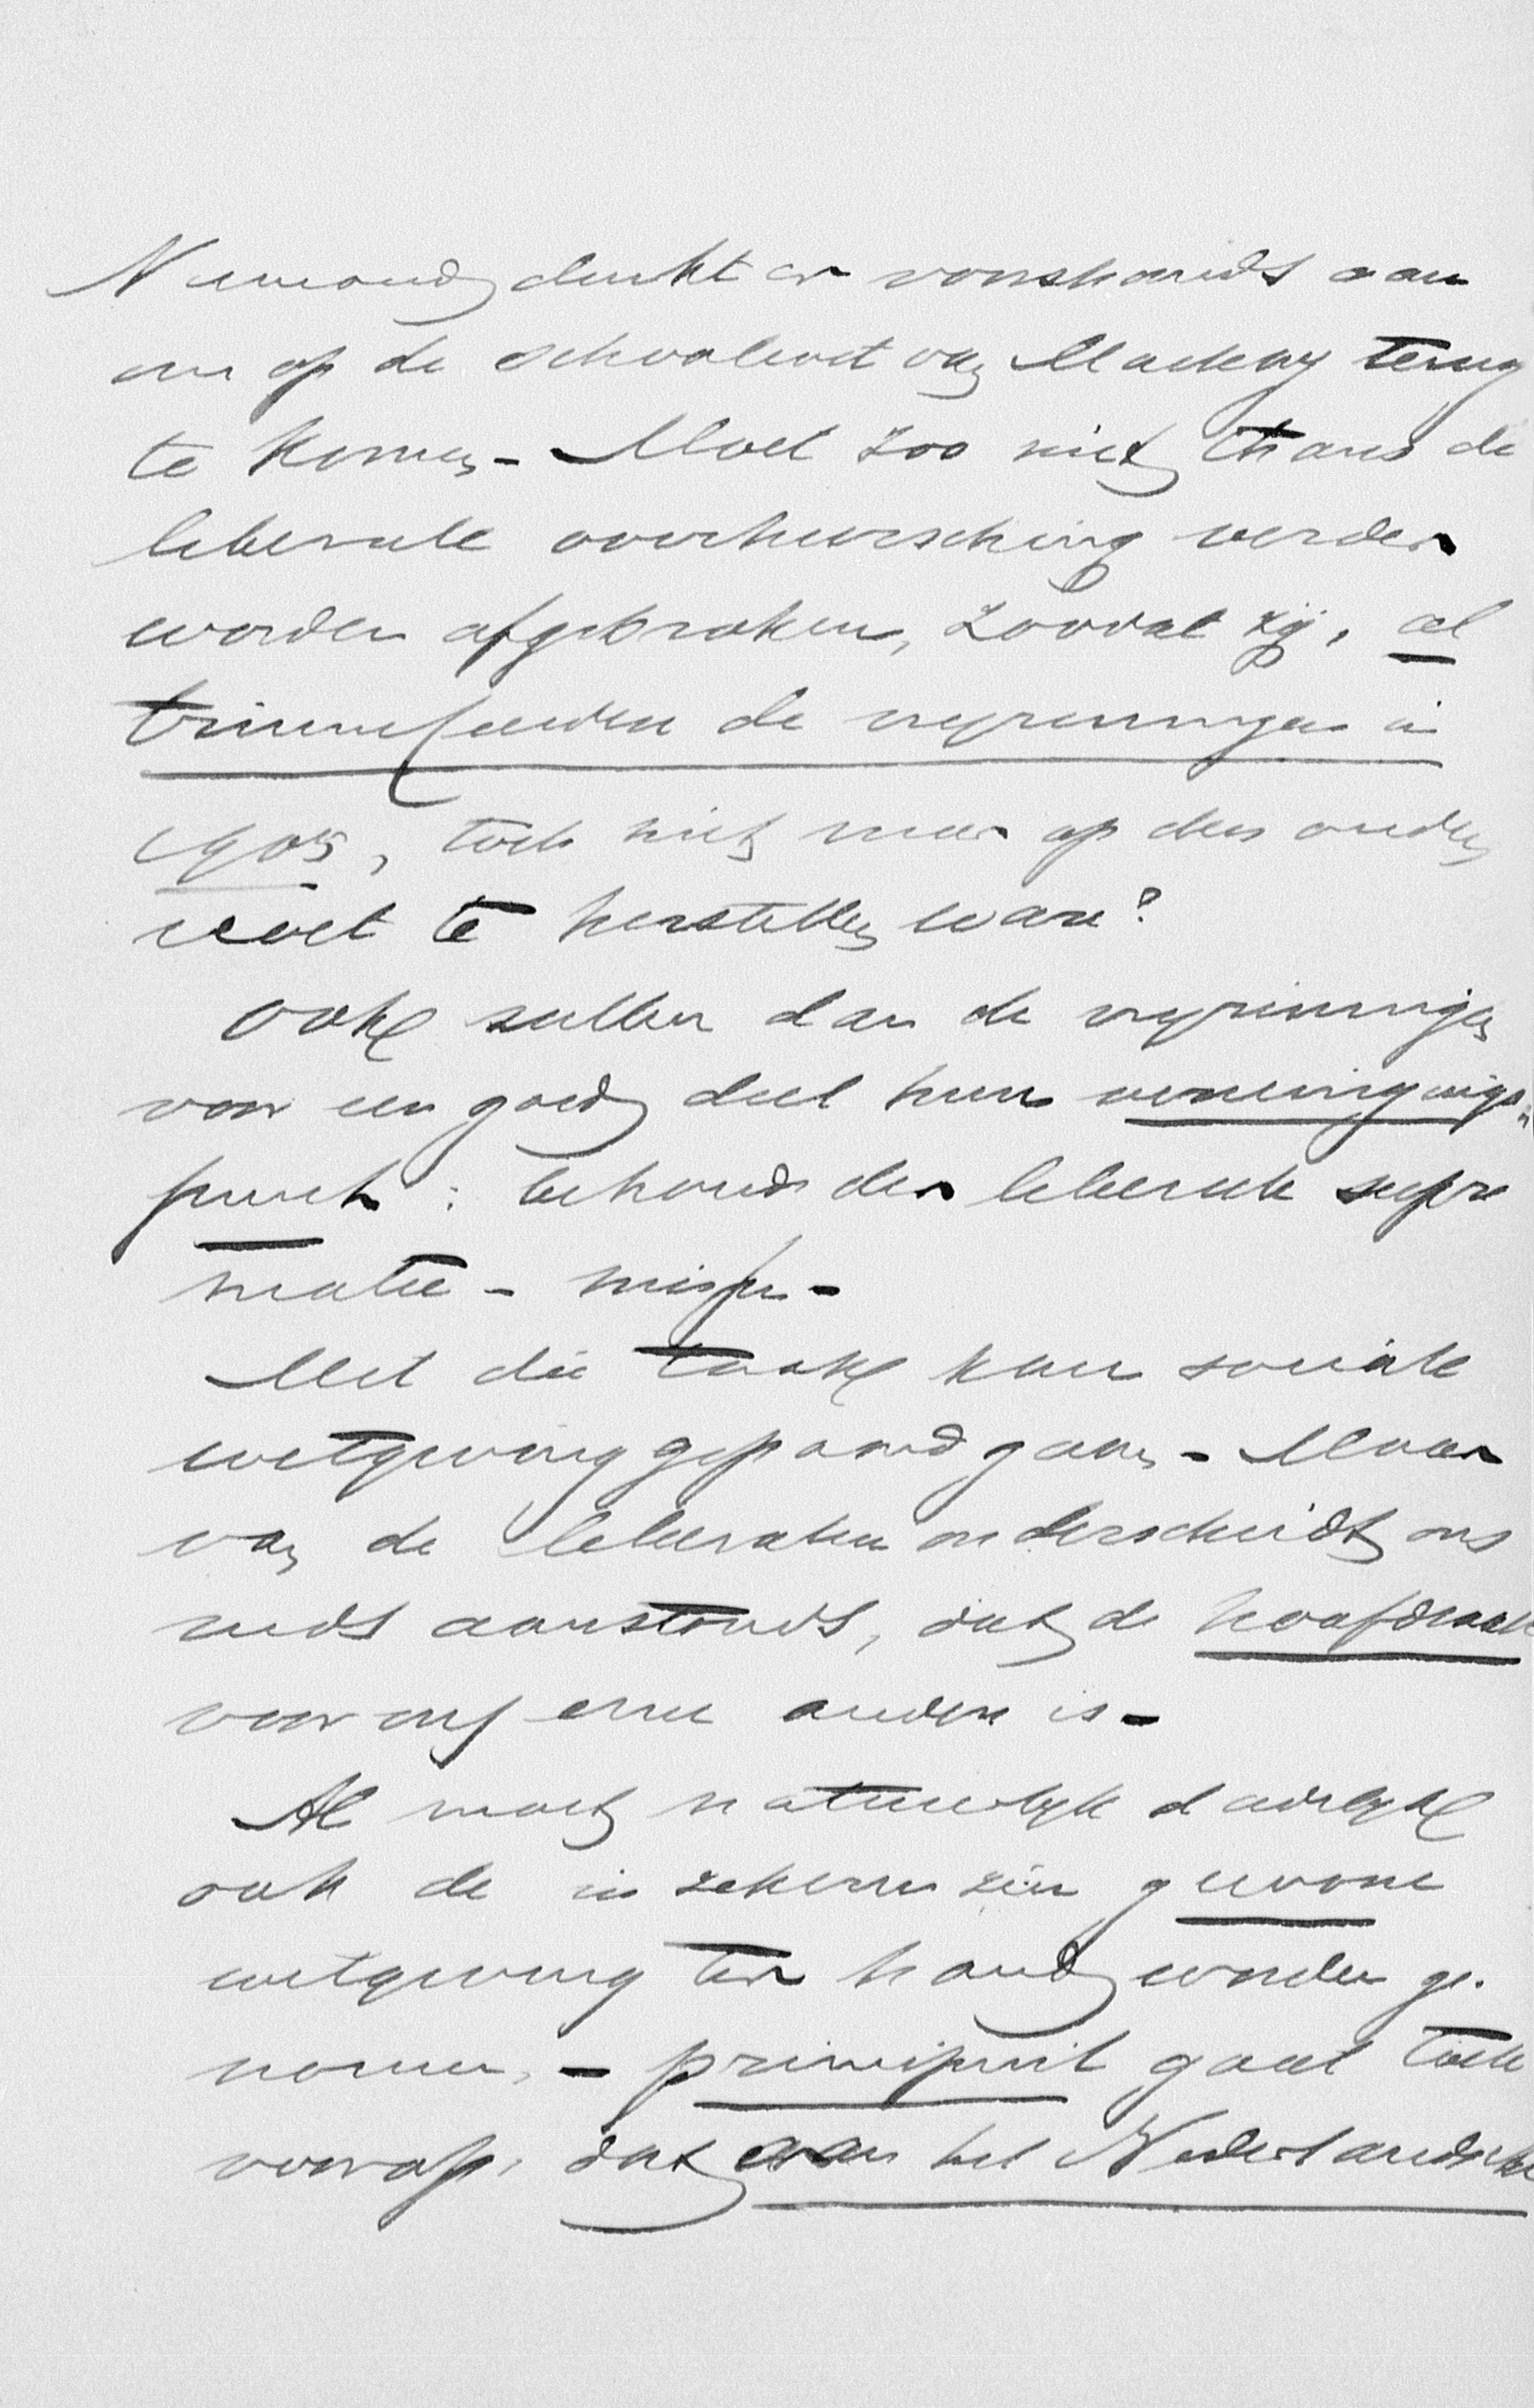 Niemand denkt er voorshands aan
om op de Schoolwet van Mackay terug
te komen – Moet zoo niet thans de
liberale overheersching verder
worden afgebroken, zoodat zij, al
triumfeerden de vrijzinnigen in
1905, toch niet meer op den ouden
voet te herstellen ware?
Ook zullen dan de vrijzinnigen
voor een goed deel hun vereenigings-
punt : behoud der liberale supre
matie – missen –
Met die taak kan sociale
wetgeving gepaard gaan – Maar
van de liberalen onderscheidt ons
reeds aanstonds, dat de hoofdzaak
voor ons eene andere is –
Al moet natuurlijk dadelijk
ook de in zekeren zin gewone
wetgeving ter hand worden ge-
nomen, – principieel gaat toch
voorop, dat aan het Nederlandsche